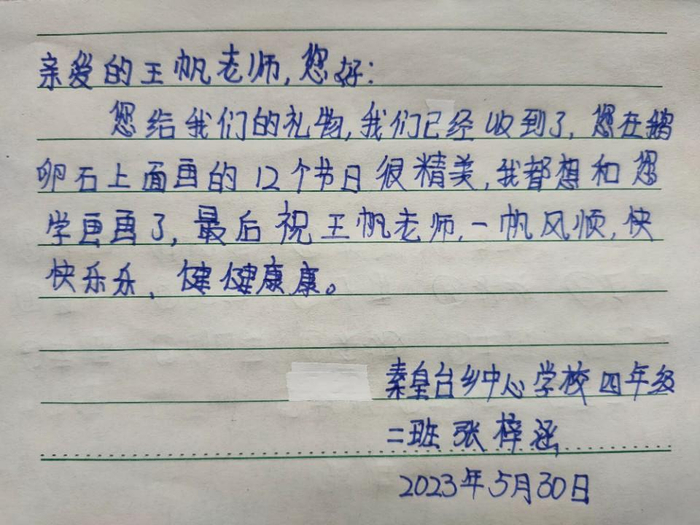 亲爱的王帆老师,您好:
您给我们的礼物,我们已经收到了,您在鹅
卵石上面画的12个书日很精美,我都想和您
学画画了,最后祝王帆老师,一帆风顺,快
快乐乐、健健康康。
秦皇台乡中心学校四年级
二班张梓涵
2023年5月30日